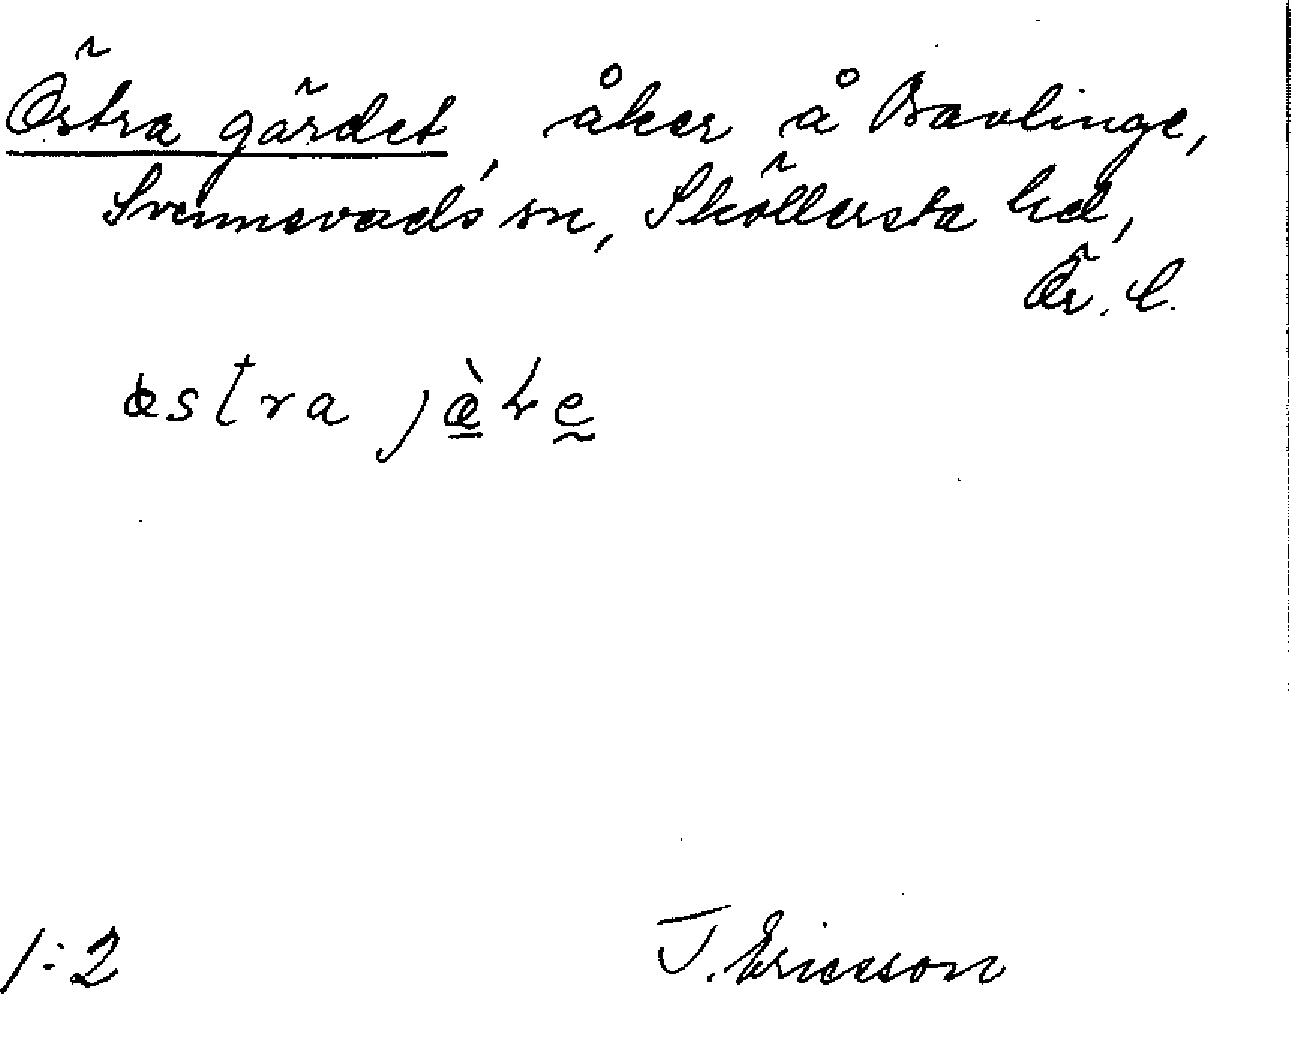 Östra gärdet, åker å Bavlinge,
Svennevads sn, Sköllersta hd,
Ör. l.
östra
1:2 T. Ericsson